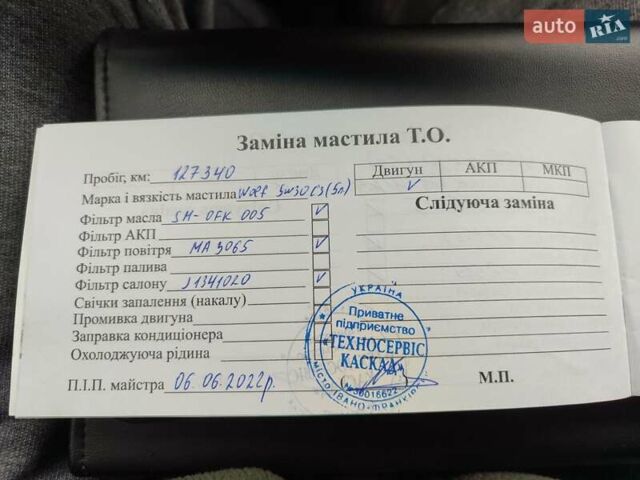 auto RIA .com
Заміна мастила Т.О.
Пробіг, км: 127340
Двигун АКП МКП
Марка і вязкість мастила Wolf 5W30 C3 (5л)
Слідуюча заміна
Фільтр масла SM-OFK 005
Фільтр АКП
Фільтр повітря MA 3065
Фільтр палива
Фільтр салону J1341020
Свічки запалення (накалу)
Промивка двигуна
Заправка кондиціонера
Охолоджуюча рідина
П.І.П. майстра 06.06.2022р.
М.П.
УКРАЇНА
Приватне
підприємство
«ТЕХНОСЕРВІС
КАСКАД»
МІСТО ІВАНО-ФРАНКІВСЬК